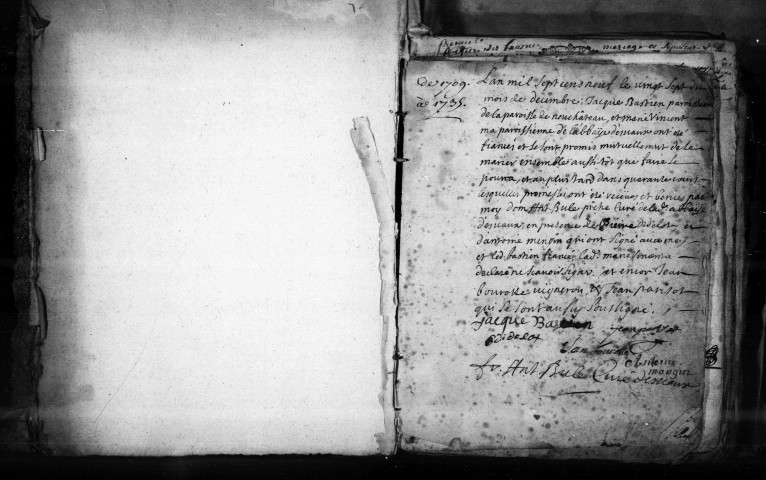 mariage et
de 1709.
à 1735.
L'an mil sept cens neuf le vingt sept du
mois de decembre, Jacque Bastien paroissien
de la paroisse de neuchateau, et marie Vincent
ma paroissienne de l'abbaye desvaux ont été
fiancés et se sont promis mutuellement de se
marier ensemble aussi-tot que faire se
pourra, et au plus tard dans quarante jours
lesquelles promesses ont été receues et benies par
moy dom Ant. Bule prêtre curé de lad. abbaye
desvaux, en presence de Pierre didelot et
d'antoine mengin qui ont signé avec moy
et led. bastien fiancé, lad. marie
declaré ne scavoir signer, et encor Jean
bourotte vigneron, et Jean parisot
qui se sont aussy soussigné.
Jacque Bastien
P didelot
antoine
mangin
fr. Ant. Bule Curé desvaux